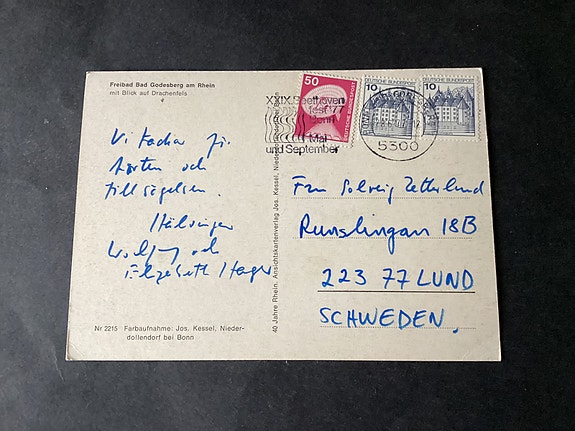 Freibad Bad Godesberg am Rhein
mit Blick auf Drachenfels
Vi tackar för
korten och
tillsägelsen.
Hälsningar
Wolfgang och
Elizabeth
Nr 2215 Farbaufnahme: Jos. Kessel, Nieder-
dollendorf bei Bonn
40 Jahre Rhein. Ansichtskartenverlag Jos. Kessel, Niederdollendorf bei Bonn
XXIX. Beethoven
fest '77
Bonn
Mai
und September
50
DEUTSCHE BUNDESPOST
10
DEUTSCHE BUNDESPOST
10
DEUTSCHE BUNDESPOST
5300
Frau Solveig Zetterlund
Runslingan 18B
223 77 LUND
SCHWEDEN.